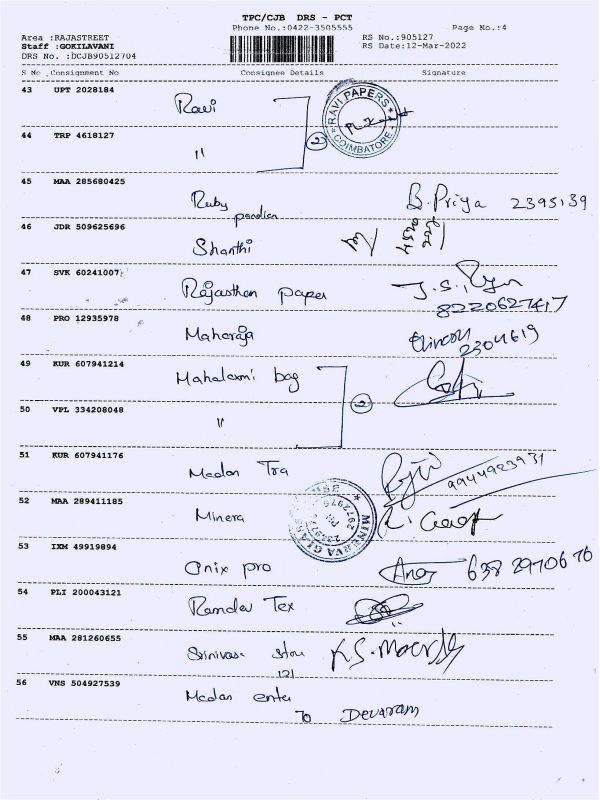 TPC/CJB DRS - PCT
Phone No.:0422-3505555 Page No.:4
Area :RAJASTREET RS No.:905127
Staff :GOKILAVANI RS Date:12-Mar-2022
DRS No. :DCJB90512704
S No Consignment No Consignee Details Signature
43 UPT 2028184 Ravi RAVI PAPERS COIMBATORE
44 TRP 4618127 " 2
45 MAA 285680425 Ruby pandian B. Priya 2395139
46 JDR 509625696 Shanthi
47 SVK 60241007 Rajasthan paper J.S.
8220627417
48 PRO 12935978 Maharaja
2304619
49 KUR 607941214 Mahalaxmi bag
50 VPL 334208048 " 2
51 KUR 607941176 Madan Tra 9944923931
52 MAA 289411185 Minera MINERVA GLASS
53 IXM 49919894 Onix pro 638 2970676
54 PLI 200043121 Ramdev Tex
55 MAA 281260655 Srinivasa stou K.S.
121
56 VNS 504927539 Madan ente
70 Devaram